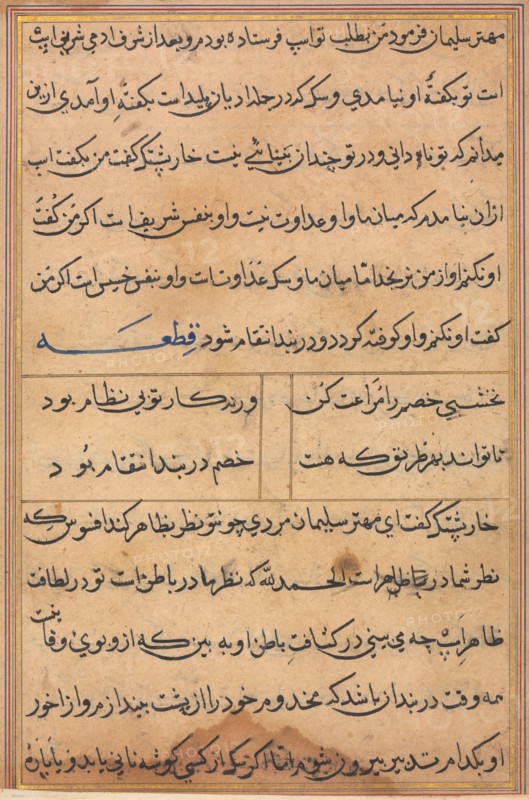 مهتر سلیمان فرمود من بطلب تو اسپ فرستاده بودم و بعد از شرف ادمی شریف اسپ
است تو بکفتهٔ او نیامدی و سک که در جلد ادیان پلید است بکفتهٔ او آمدی ازین
میدانم که تو نادانی و در تو چندان بینائیی نیست خارپشتک کفت من بکفت اسپ
ازان نیامدم که میان ما و او عداوت نیست و او بنفس شریف است اکر من کفت
او نکنم او از من نرنجد اما میان ما و سک عداوتست و او بنفس خسیس است اکر من
کفت او نکنم او کوفته کردد و در بند انتقام شود قطعه
نخشبی خصم را مراعت کن ورنه کار تو بی نظام بود
تا تواند بهر طریق که هست خصم در بند انتقام بود
خارپشتک کفت ای مهتر سلیمان مردی چو تو نظر بظاهر کند افسوس که
نظر شما در ظاهر است الحمد لله که نظر ما در باطن است تو در لطافت
ظاهر اسپ چه می بینی در کثافت باطن او به بین که از و بوی وفا نیست
همه وقت در بند ان باشد که مخدوم خود را از پشت بیندازم و از اخور
او بکدام تدبیر بیرون شوم اما اکر سک از کسی کوشه نانی یابد و یا پاره